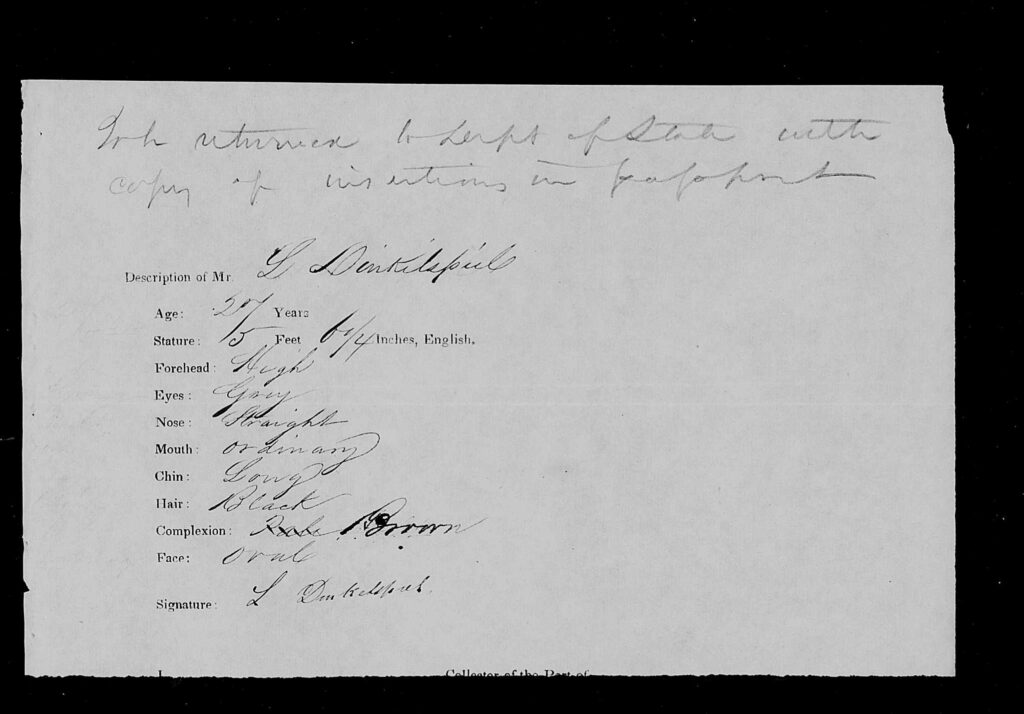 To be returned to Dept of State with
copy of insertions in passport
Description of Mr. L Dinkelspiel
Age: 27 Years
Stature: 5 Feet 6 1/4 Inches, English.
Forehead: High
Eyes: Grey
Nose: Straight
Mouth: ordinary
Chin: Long
Hair: Black
Complexion: Brown
Face: oval
Signature: L Dinkelspiel
I Collector of the Port of